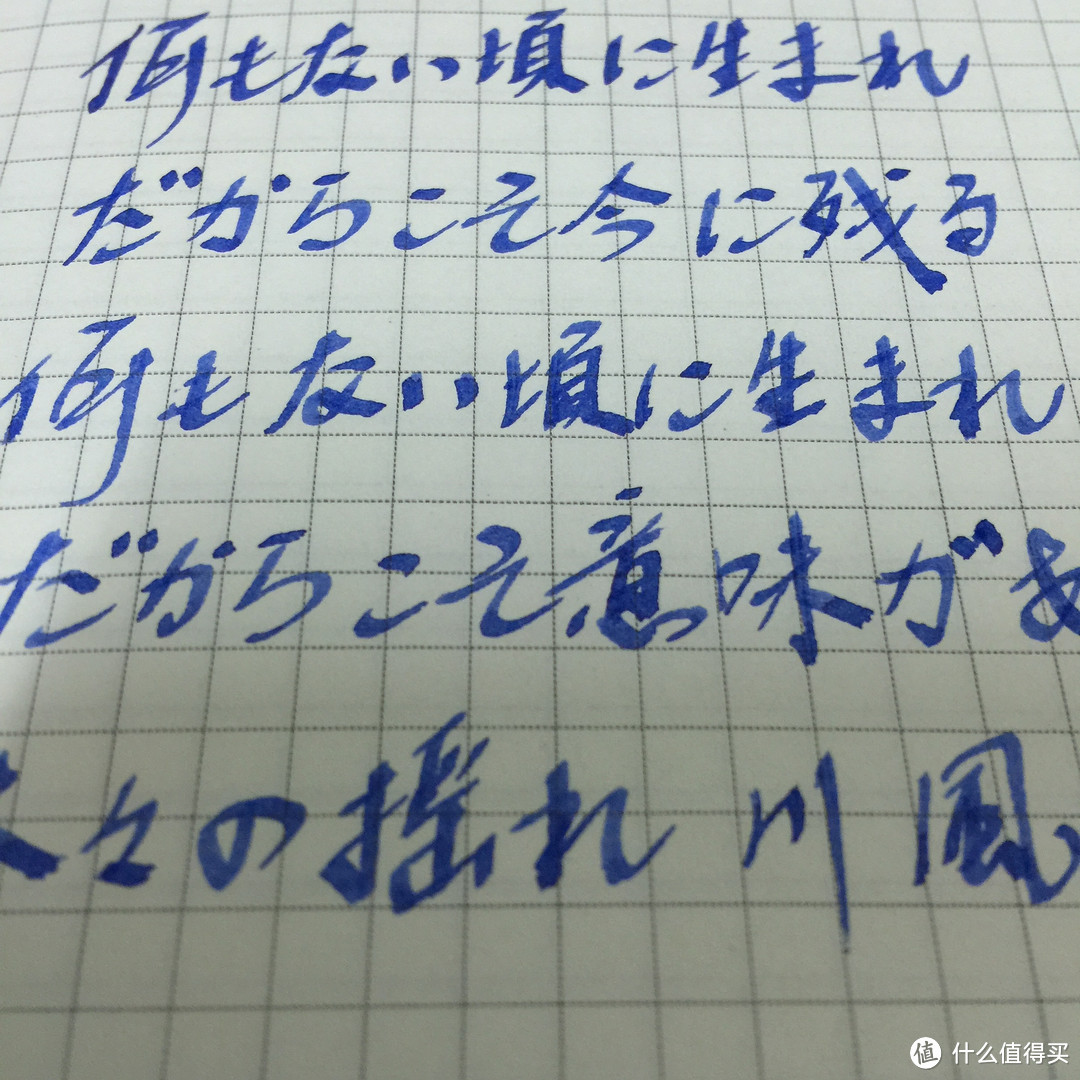 何もない頃に生まれ
だからこそ今に残る
何もない頃に生まれ
だからこそ意味があ
木々の揺れ川風
值 什么值得买